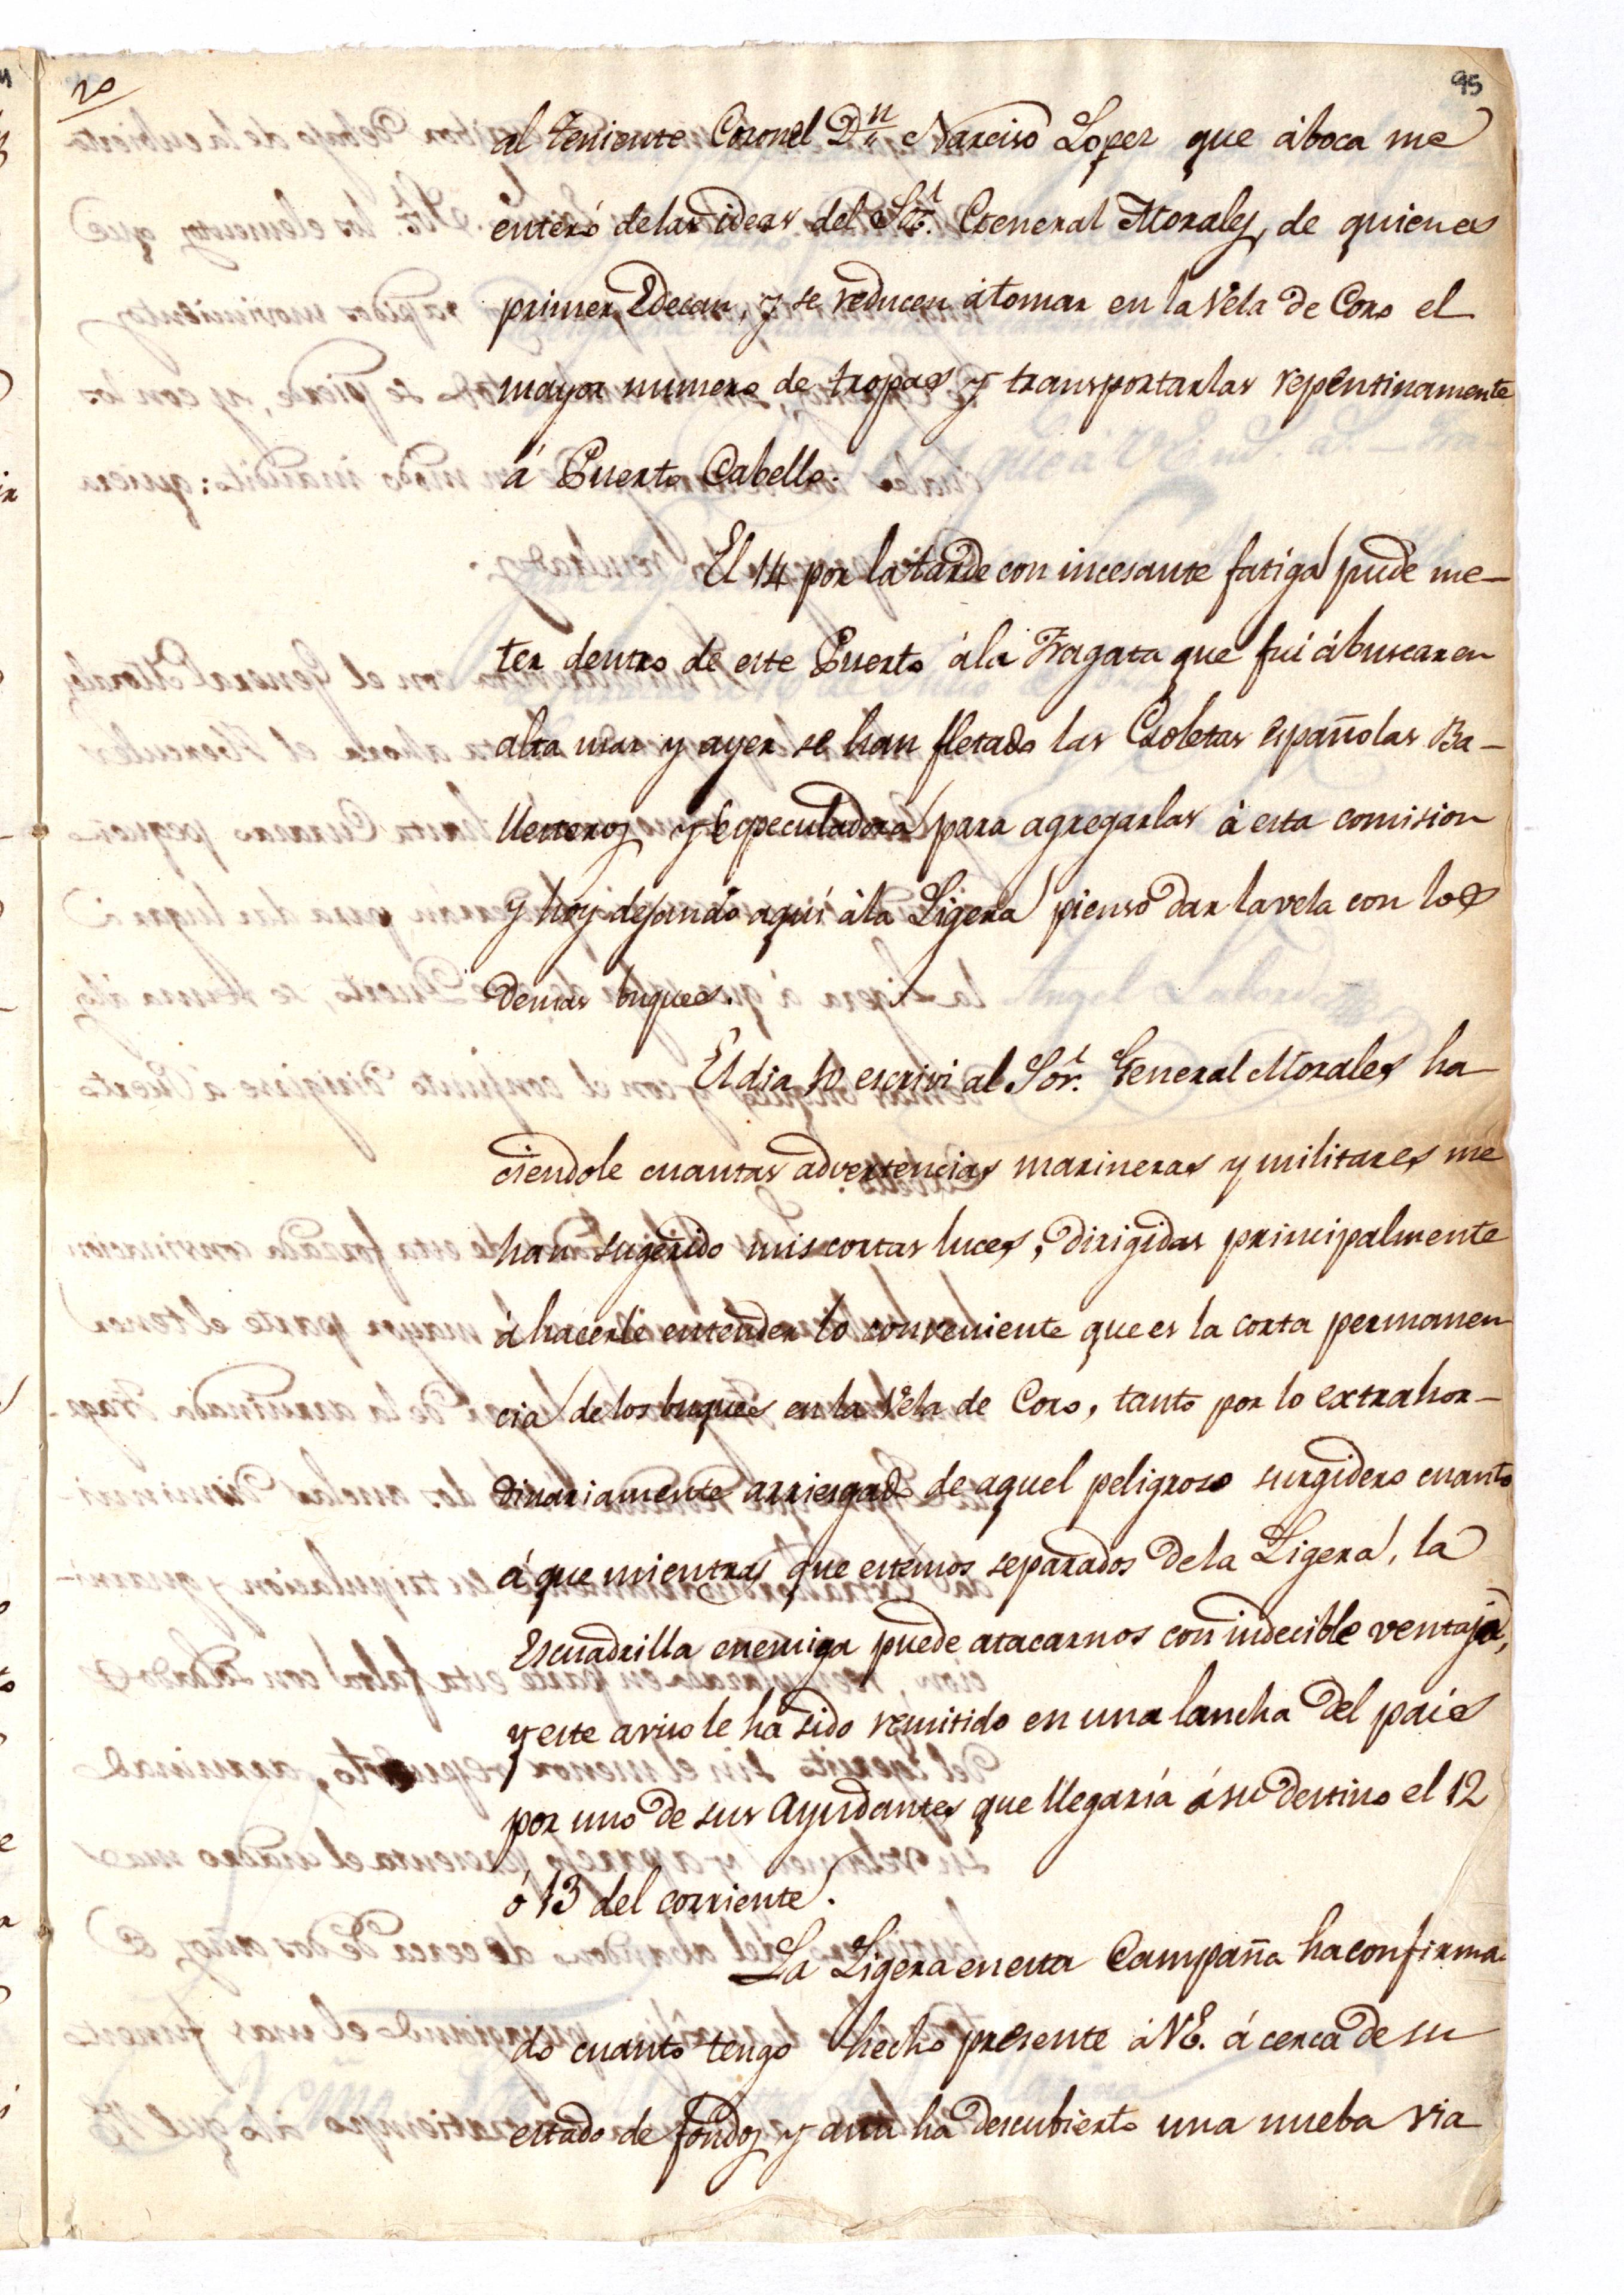 2º
95
al teniente Coronel Dn. Narciso Lopez que àboca me
enteró delas ideas del Sor. General Morales, de quien es
primer Edecan, y se reducen átomar en la Vela de Coro el
mayor numero de tropas y transportarlas repentinamente
á Puerto Cabello.
El 14 por la tarde con incesante fatiga pude me-
ter dentro de este Puerto àla Fragata que fui ábuscar en
alta mar y ayer se han fletado las Goletas españolas Ba-
llesteros y Especuladora para agregarlas à esta comision
y hoy dejando aquí àla Ligera pienso dar lavela con los
demas buques.
El dia 10 escrivi al Sor. General Morales ha-
ciendole cuantas advertencias marineras y militares me
han sugerido mis cortas luces, dirigidas principalmente
á hacerle entender lo conveniente que es la corta permanen
cia de los buques en la Vela de Coro, tanto por lo extrahor-
dinariamente arriesgado de aquel peligroso surgidero cuanto
á que mientras que estémos separados dela Ligera, la
Escuadrilla enemiga puede atacarnos con indecible ventaja,
y este aviso le ha sido remitido en una lancha del pais
por uno de sus Ayudantes que llegaría ásu destino el 12
ó 13 del corriente.
La Ligera en esta Campaña ha confirma-
do cuanto tengo hecho presente àVE. á cerca de su
estado de fondos y aun ha descubierto una nueba via